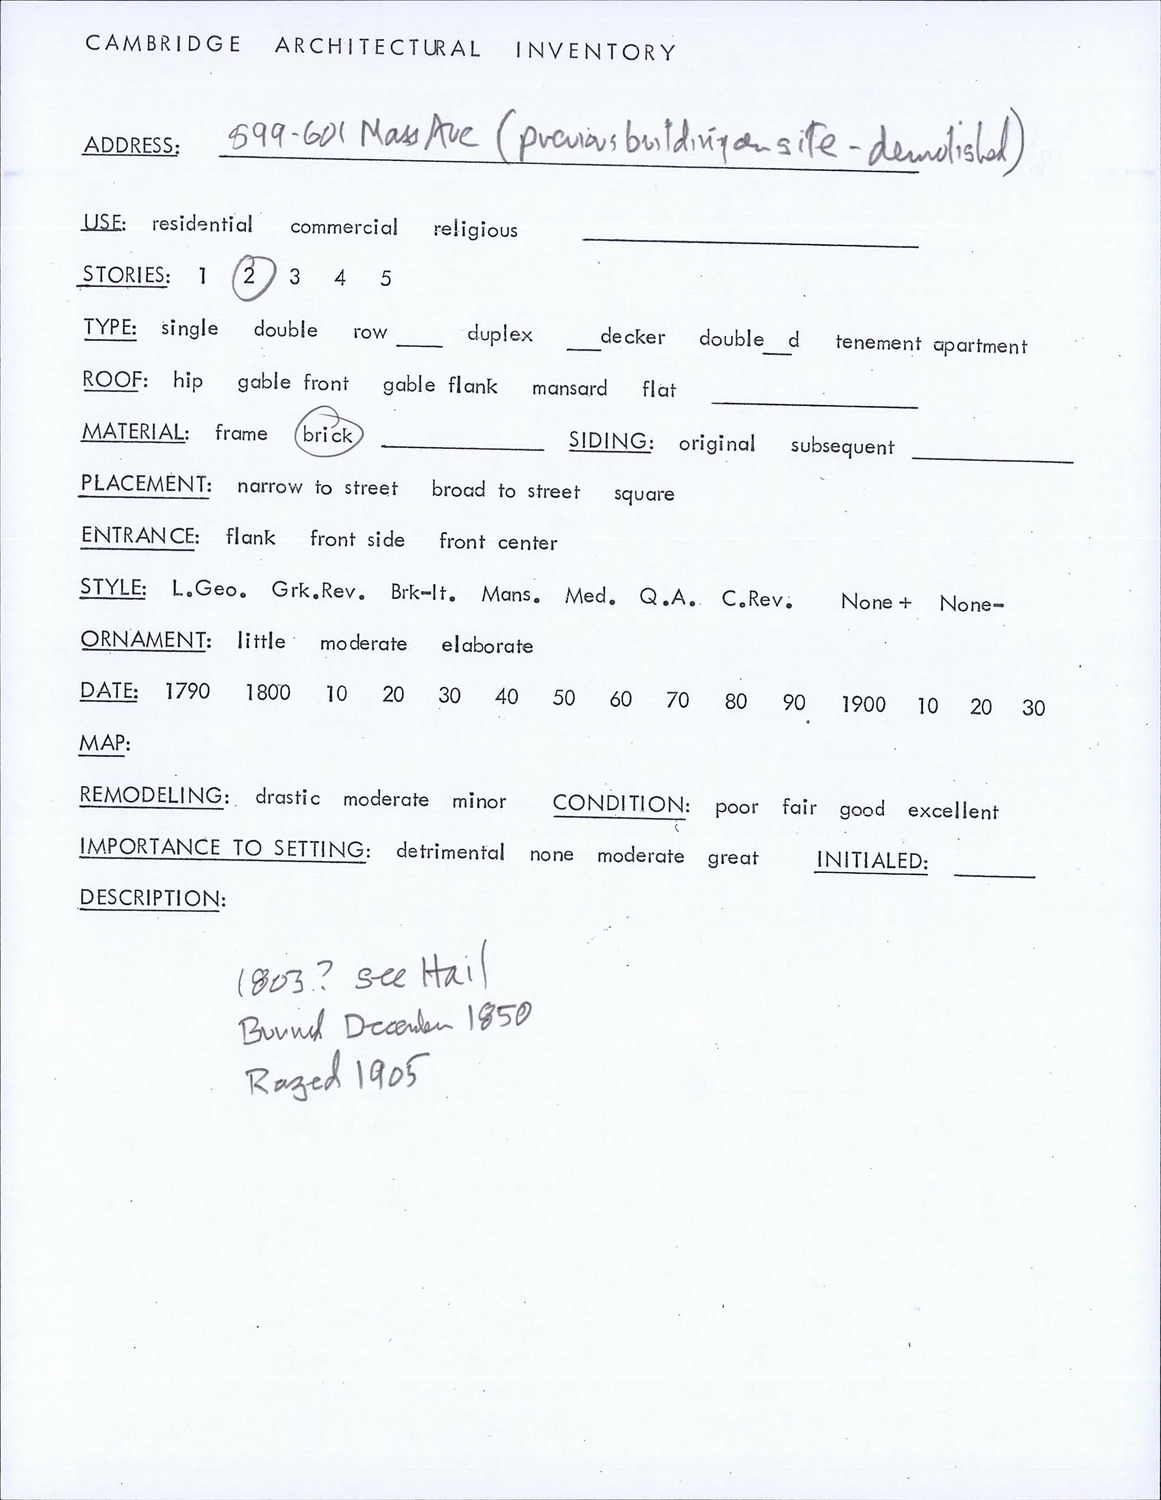 CAMBRIDGE ARCHITECTURAL INVENTORY
ADDRESS: 599-601 Mass Ave (previous building on site - demolished)
USE: residential commercial religious
STORIES: 1 2 3 4 5
TYPE: single double row ___ duplex ___decker double__d tenement apartment
ROOF: hip gable front gable flank mansard flat
MATERIAL: frame brick SIDING: original subsequent
PLACEMENT: narrow to street broad to street square
ENTRANCE: flank front side front center
STYLE: L.Geo. Grk.Rev. Brk-It. Mans. Med. Q.A. C.Rev. None+ None-
ORNAMENT: little moderate elaborate
DATE: 1790 1800 10 20 30 40 50 60 70 80 90 1900 10 20 30
MAP:
REMODELING: drastic moderate minor CONDITION: poor fair good excellent
IMPORTANCE TO SETTING: detrimental none moderate great INITIALED:
DESCRIPTION:
1803? see Hail
Burned December 1850
Razed 1905